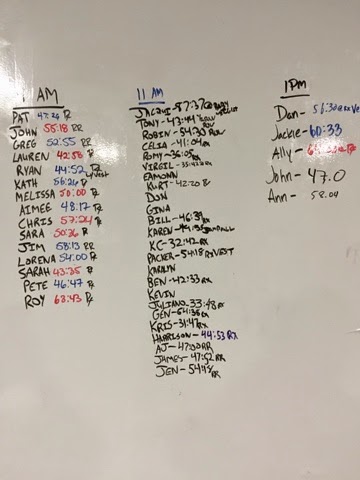 AM
PAT 47:26 RX
JOHN 55:18 RR
GREG 52:55 RR
LAUREN 42:58 RX
RYAN 44:52 RX
KATH 56:26 RX
MELISSA 50:00 RX
AIMEE 48:17 RX
CHRIS 57:24 RX
SARA 50:36 RX
JIM 58:13 RR
LORENA 54:00 RX
SARAH 43:35 RX
PETE 46:47 RX
ROY 63:43 RX
11 AM
JACQUI - 57:37 @ BABY
TONY - 43:44
ROBIN - 54:30 ROW
CELIA - 41:04 RX
ROMY - 36:05 RX
VIRGIL - 35:43 RX
EAMONN
KURT - 42:20 R
DON
GINA
BILL - 46:39 RX
KAREN
KC - 32:42 RX
PACKER - 54:18 RX VEST
KARALYN
BEN - 42:33 RX
KEVIN
JULIANO 33:48 RX
GEN - 64:36 RX
KRIS - 31:47 RX
HARRISON - 44:53 RX
AJ - 47:00 RR
JAMES - 47:52 RX
JEN - 54:43 RX
1PM
Dan - 56:32 @ RX Ve
Jackie - 60:33
Ally -
John - 47.0
Ann - 58:04